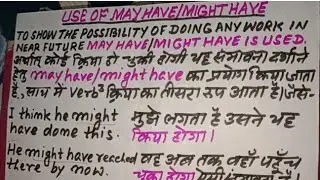 USE OF MAY HAVE/MIGHT HAVE
TO SHOW THE POSSIBILITY OF DOING ANY WORK IN
NEAR FUTURE MAY HAVE/MIGHT HAVE IS USED.
अर्थात् कोई क्रिया हो चुकी होगी यह संभावना दर्शाने
हेतु may have/might have का प्रयोग किया जाता
है, साथ में verb³ क्रिया का तीसरा रूप आता है। जैसे-
I think he might मुझे लगता है उसने यह
have done this. किया होगा।
He might have reached वह अब तक वहाँ पहुँच
there by now. चुका होगा